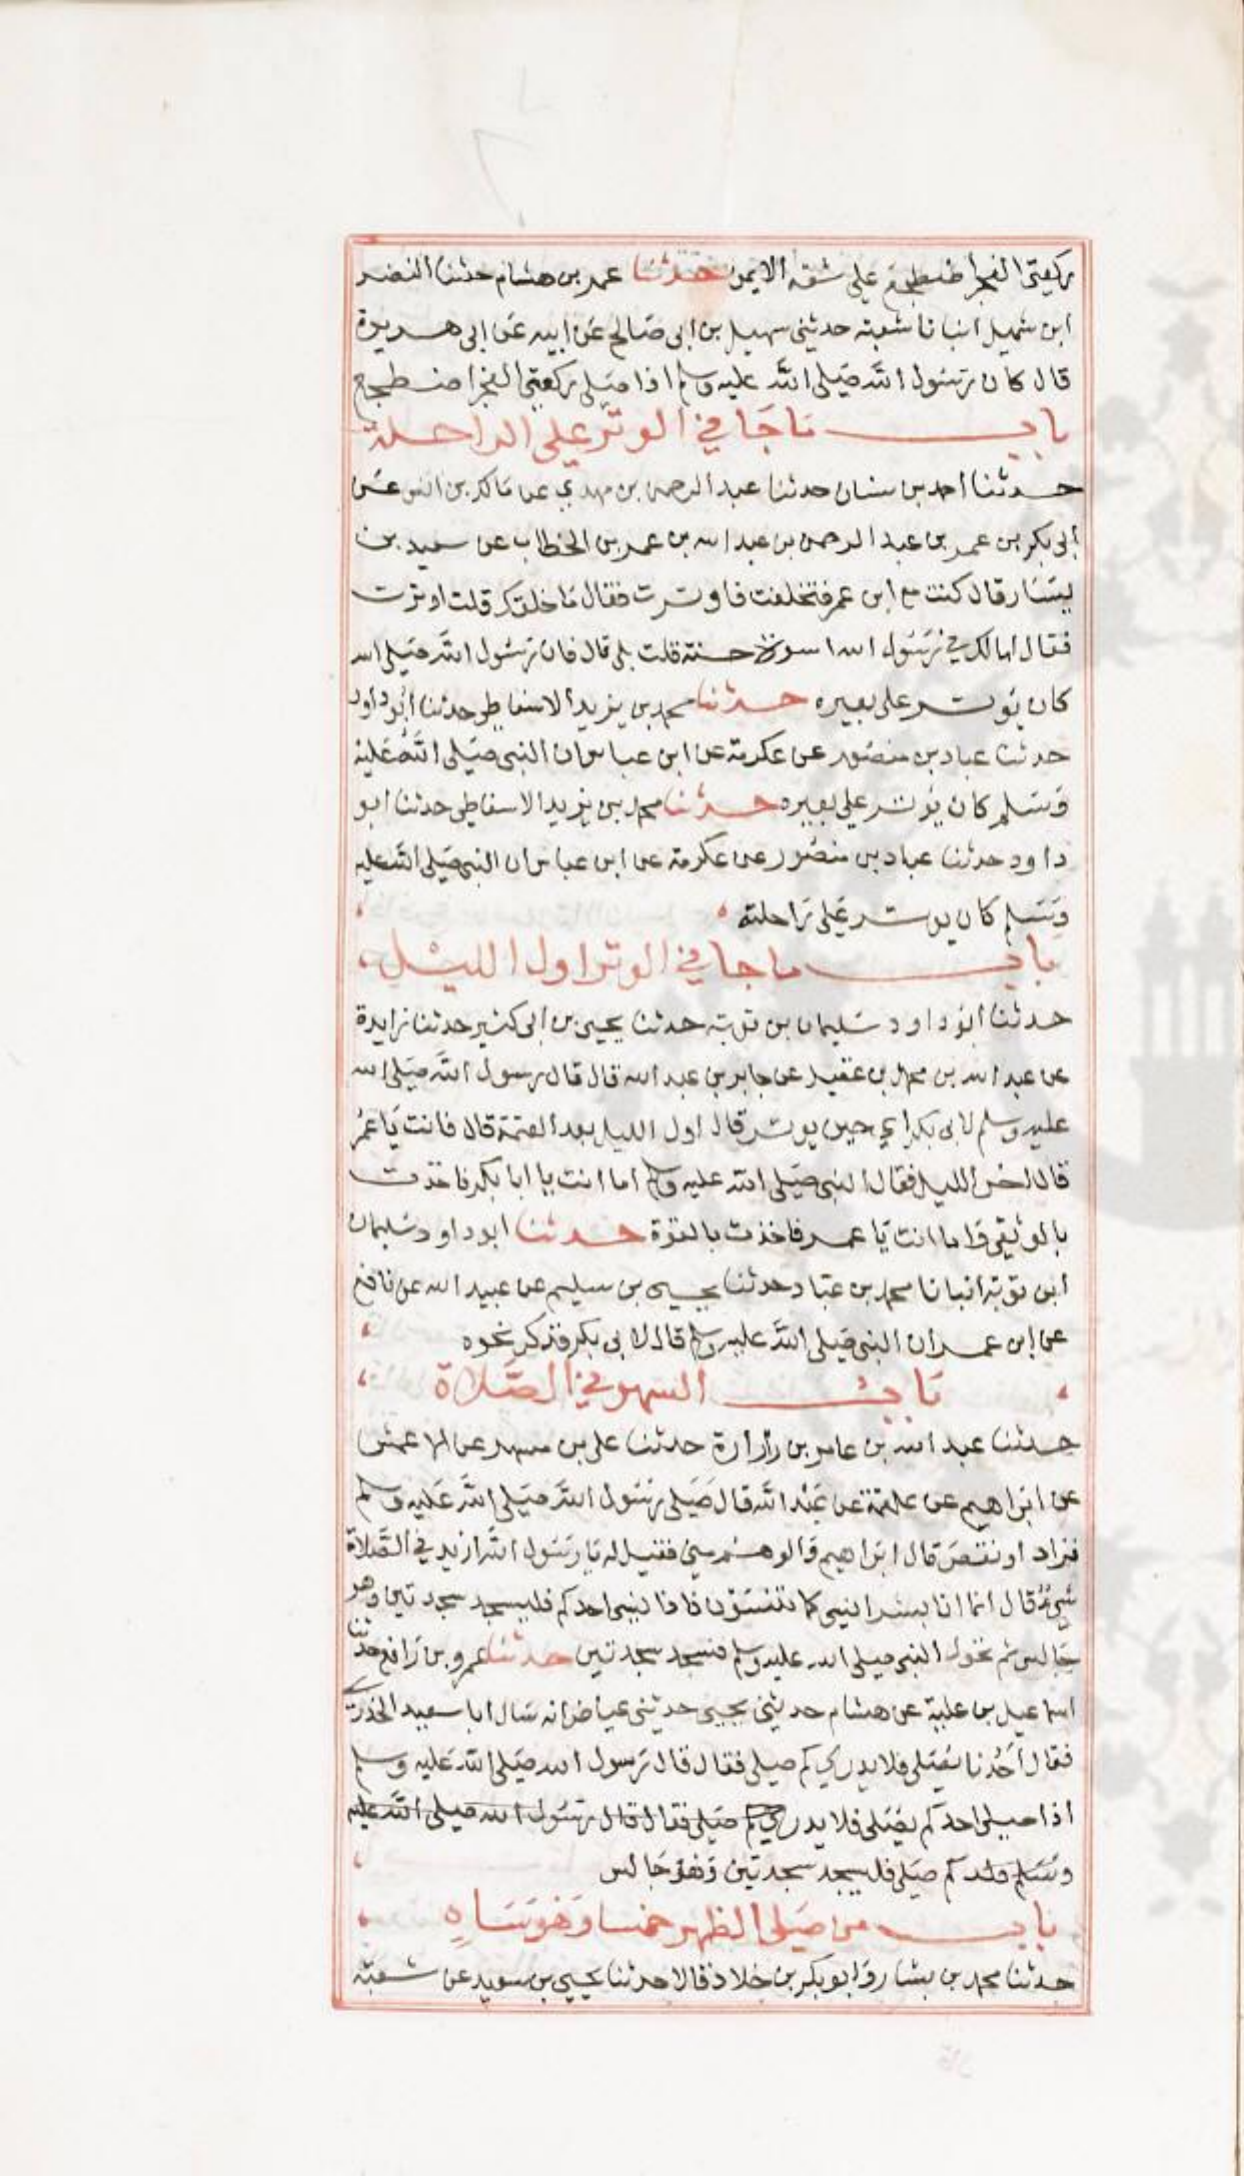 ركعتي الفجر اضطجع على شقه الايمن حدثنا عمر بن هشام حدثنا النضر
ابن شميل انبانا شعبة حدثني سهيل بن ابى صالح عن ابيه عن ابى هريرة
قال كان رسول الله صلى الله عليه وسلم اذا صلى ركعتي الفجر اضطجع
باب ما جا في الوتر على الراحلة
حدثنا احمد بن سنان حدثنا عبد الرحمن بن مهدي عن مالك بن انس عن
ابى بكر بن عمر بن عبد الرحمن بن عبد الله بن عمر بن الخطاب عن سعيد بن
يسار قال كنت مع ابن عمر فتخلفت فاوترت فقال ما خلفك قلت اوترت
فقال امالك في رسول الله اسوة حسنة قلت بلى قال فان رسول الله صلى الله
كان يوتر على بعيره حدثنا محمد بن يزيد الاسفاطي حدثنا ابو داود
حدثنا عباد بن منصور عن عكرمة عن ابن عباس ان النبي صلى الله عليه
وسلم كان يوتر على بعيره حدثنا محمد بن يزيد الاسفاطي حدثنا ابو
داود حدثنا عباد بن منصور عن عكرمة عن ابن عباس ان النبي صلى الله عليه
وسلم كان يوتر على راحلته
باب ما جا في الوتر اول الليل
حدثنا ابو داود سليمان بن توبة حدثنا يحيى بن ابى كثير حدثنا زايدة
عن عبد الله بن محمد بن عقيل عن جابر بن عبد الله قال قال رسول الله صلى الله
عليه وسلم لابى بكر اي حين يوتر قال اول الليل بعد العتمة قال فانت يا عمر
قال اخر الليل فقال النبي صلى الله عليه وسلم اما انت يا ابا بكر فاخذت
بالوثقى واما انت يا عمر فاخذت بالقوة حدثنا ابو داود سليمان
ابن توبة انبانا محمد بن عباد حدثنا يحيى بن سليم عن عبيد الله عن نافع
عن ابن عمر ان النبي صلى الله عليه وسلم قال لابى بكر فذكر نحوه
باب السهو في الصلاة
حدثنا عبد الله بن عامر بن زرارة حدثنا على بن مسهر عن الاعمش
عن ابراهيم عن علقمة عن عبد الله قال صلى رسول الله صلى الله عليه وسلم
فزاد او نقص قال ابراهيم والوهم مني فقيل له يا رسول الله ازيد في الصلاة
شيء قال انما انا بشر انسى كما تنسون فاذا نسى احدكم فليسجد سجدتين وهو
جالس ثم تحول النبي صلى الله عليه وسلم فسجد سجدتين حدثنا عمرو بن رافع حدثنا
اسماعيل بن علية عن هشام حدثني يحيى حدثني عياض انه سال ابا سعيد الخدري
فقال احدنا يصلى فلا يدري كم صلى فقال قال رسول الله صلى الله عليه وسلم
اذا صلى احدكم يصلى فلا يدري كم صلى فقال قال رسول الله صلى الله عليه
وسلم كم صلى فليسجد سجدتين وهو جالس
باب من صلى الظهر خمسا وهو ساه
حدثنا محمد بن بشار وابو بكر بن خلاد قالا حدثنا يحيى بن سعيد عن شعبة